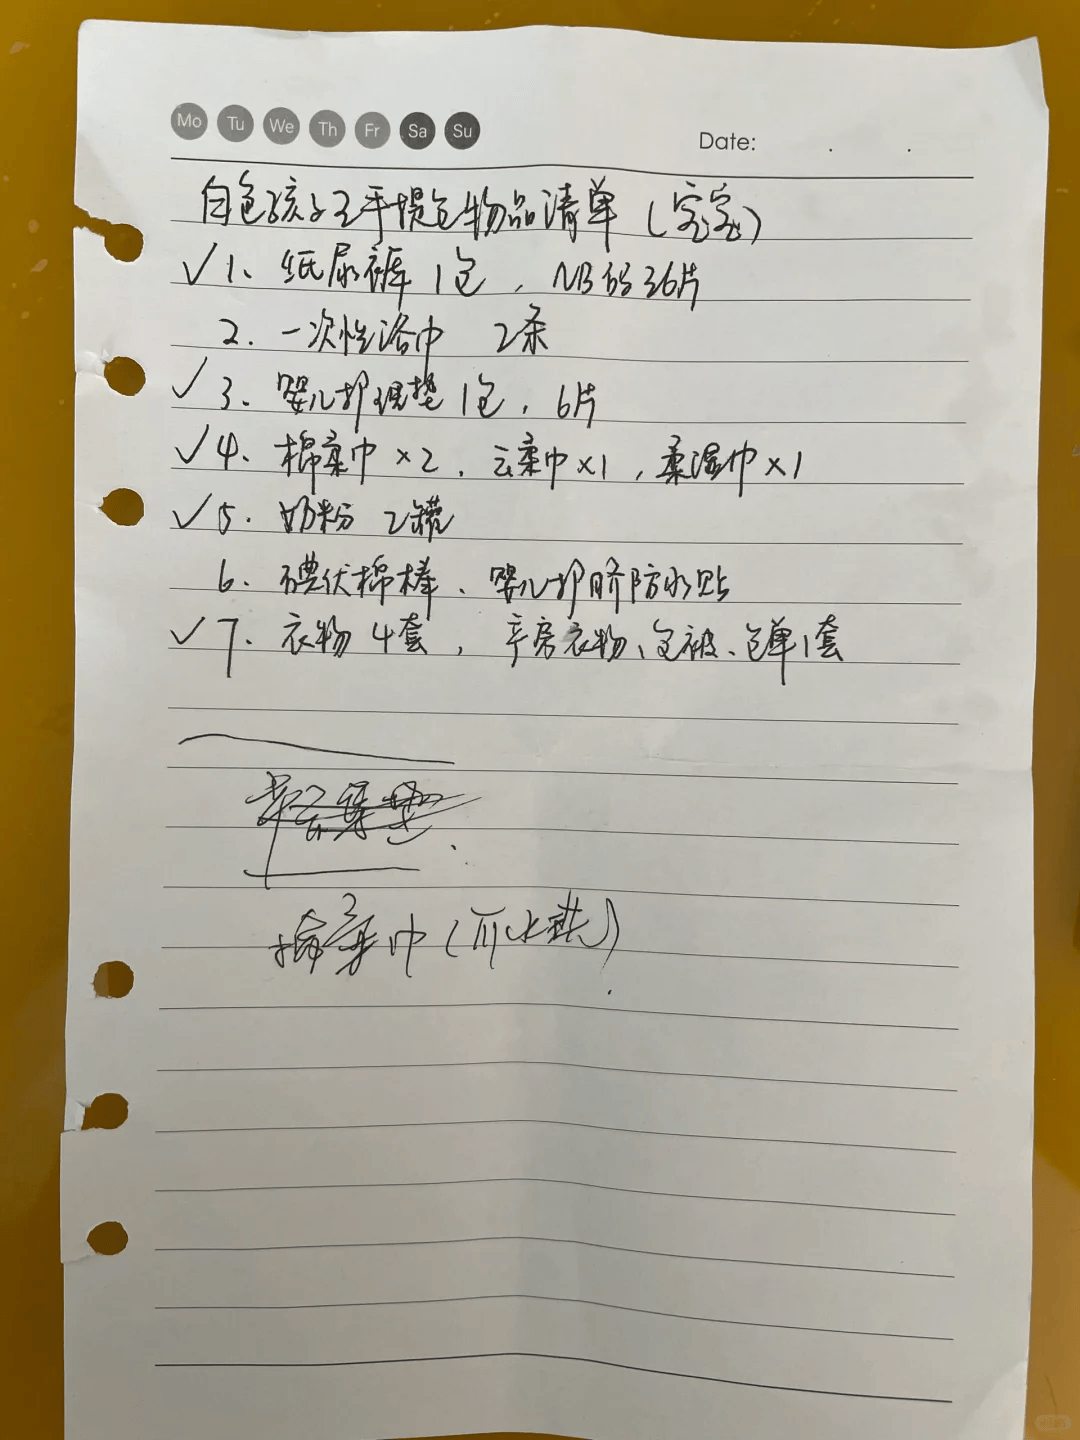 Mo Tu We Th Fr Sa Su
Date: . .
白色孩子王手提包物品清单(宝宝)
✓1、纸尿裤1包,NB码36片
2.一次性浴巾 2条
✓3.婴儿护理垫1包,6片
✓4、棉柔巾×2,云柔巾×1,柔湿巾×1
✓5.奶粉 2罐
6、碘伏棉棒、婴儿护脐防水贴
✓7、衣物4套,产房衣物、包被、包单1套
棉柔巾